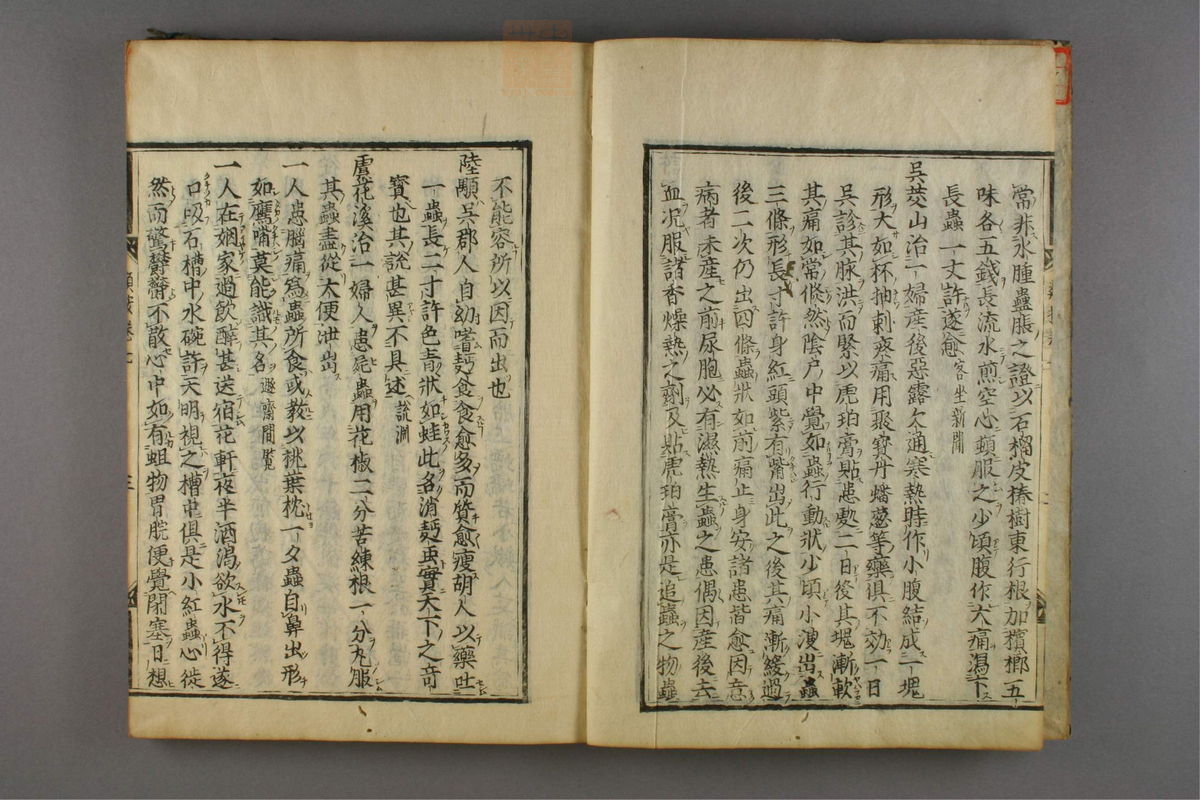 常非水腫蠱脹之證以石榴皮椿樹東行根加檳榔五
味各五錢長流水煎空心頓服之少頃腹作大痛瀉下
長蟲一丈許遂愈 客坐新聞
吳茭山治一婦産後惡露欠通寒熱時作小腹結成一塊
形大如杯抽刺疼痛用聚寶丹蟠葱等藥俱不効一日
吳診其脉洪而緊以虎珀膏貼患處二日後其塊漸軟
其痛如常倐然陰戶中覺如蟲行動狀少頃小溲出蟲
三條形長寸許身紅頭紫有觜出此之後其痛漸緩過
後二次仍出四條蟲狀如前痛止身安諸患皆愈因意
病者未産之前尿胞必有濕熱生蟲之患偶因産後去
血况服諸香燥熱之劑及貼虎珀膏亦是追蟲之物蟲
不能容所以因而出也
陸顒吳郡人自幼嗜麪食食愈多而質愈瘦胡人以藥吐
一蟲長二寸許色青狀如蛙此名消麪虫實天下之奇
寶也其說甚異不具述 說淵
盧花溪治一婦人患屍蟲用花椒二分苦練根一分丸服
其蟲盡從大便泄出
一人患腦痛爲蟲所食或教以桃葉枕一夕蟲自鼻出形
如鷹嘴莫能識其名 遯齋閒覽
一人在姻家過飲醉甚送宿花軒夜半酒渴欲水不得遂
口吸石槽中水碗許天明視之槽中俱是小紅蟲心徙
然而驚欝欝不散心中如有蛆物胃脘便覺閉塞日想